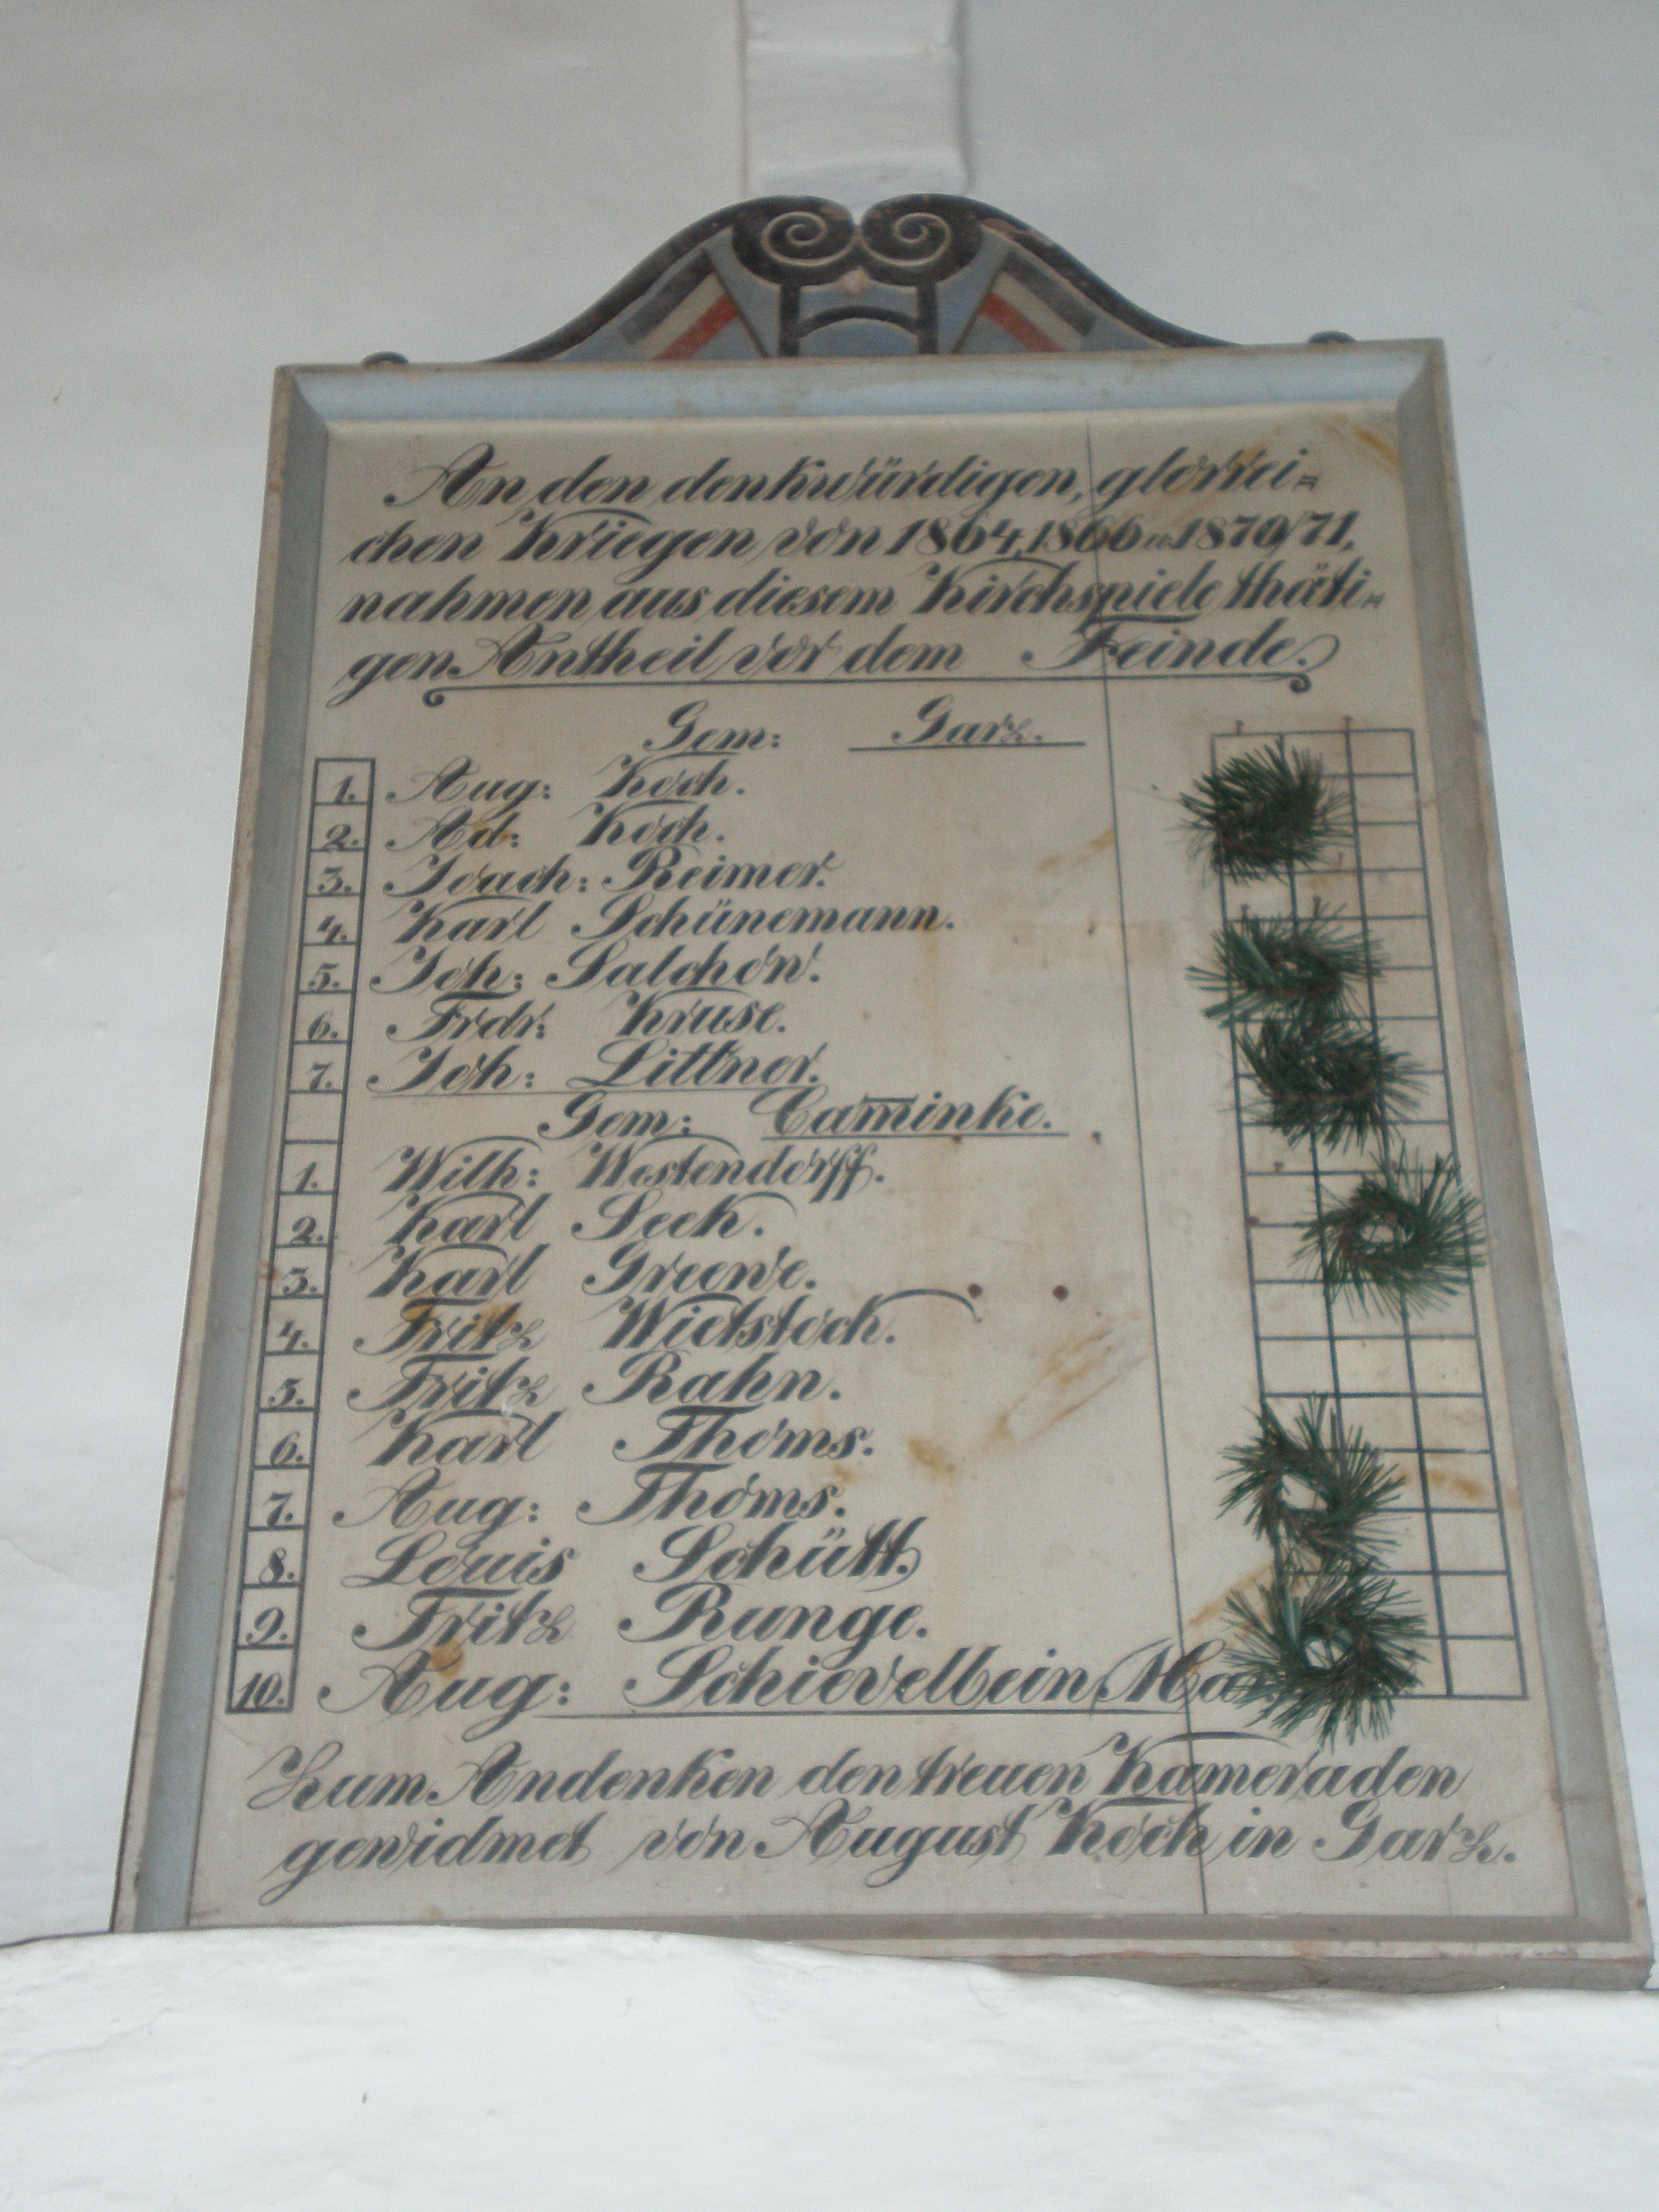 An den denkwürdigen, glorrei=
chen Kriegen von 1864, 1866 u. 1870/71,
nahmen aus diesem Kirchspiele thäti=
gen Antheil vor dem Feinde.
Gem: Garz.
1. Aug: Koch.
2. Ad: Koch.
3. Joach: Reimer.
4. Karl Schünemann.
5. Joh: Salchow.
6. Frdr: Kruse.
7. Joh: Littner.
Gem: Caminke.
1. Wilh: Westendorff.
2. Karl Seek.
3. Karl Greewe.
4. Fritz Wietstock.
5. Fritz Rahn.
6. Karl Thoms.
7. Aug: Thoms.
8. Louis Schütt.
9. Fritz Runge.
10. Aug: Schievelbein,
Zum Andenken den treuen Kameraden
gewidmet von August Koch in Garz.